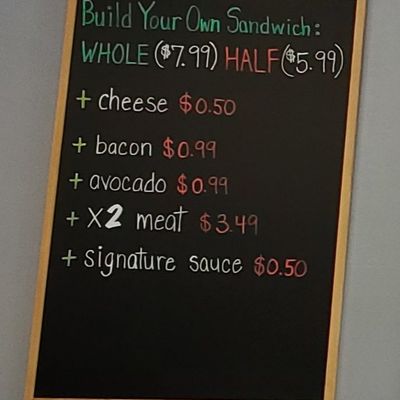 Build Your Own Sandwich:
WHOLE ($7.99) HALF ($5.99)
+ cheese $0.50
+ bacon $0.99
+ avocado $0.99
+ X2 meat $3.49
+ signature sauce $0.50